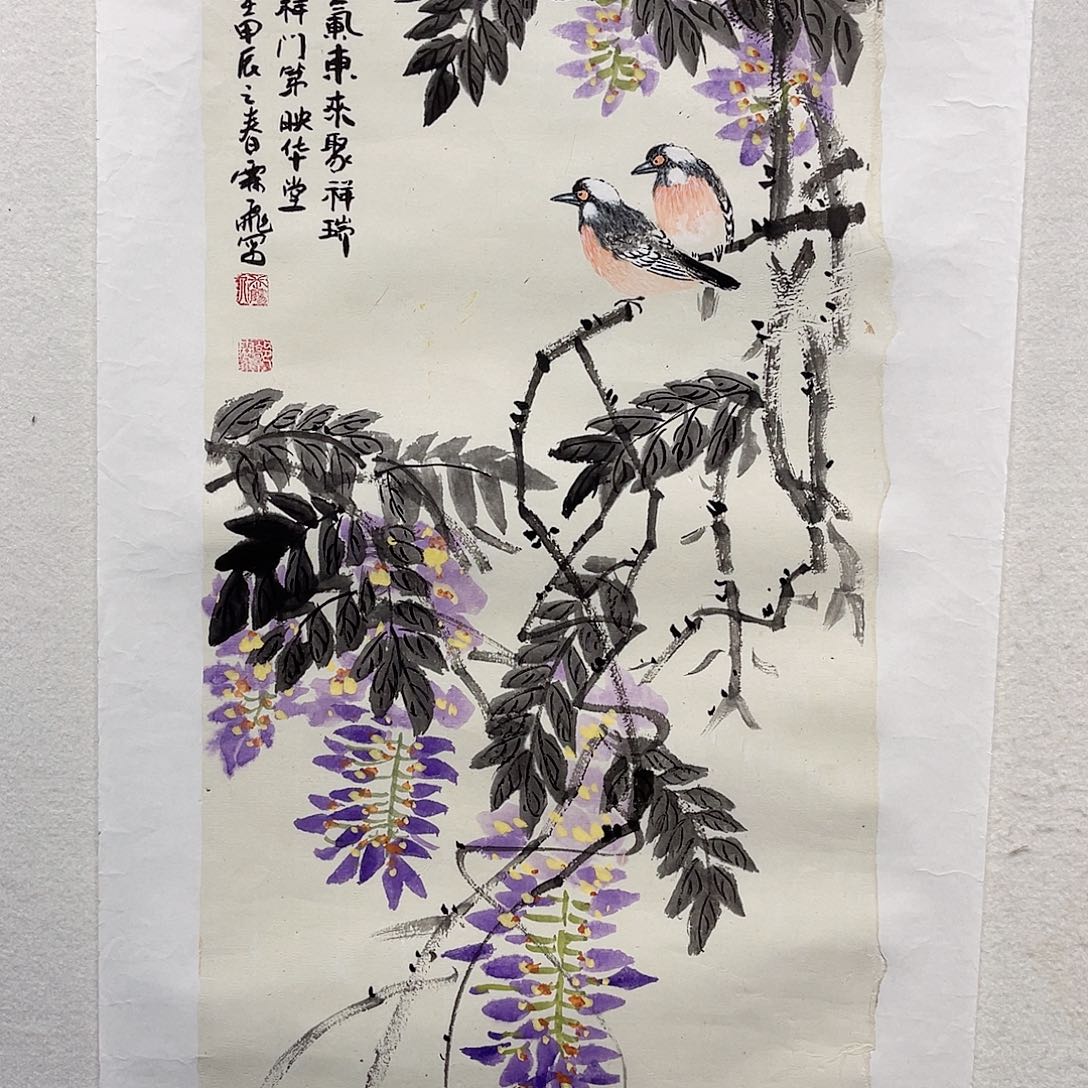 氣東来聚祥瑞
祥门第映华堂
甲辰之春霖飛写